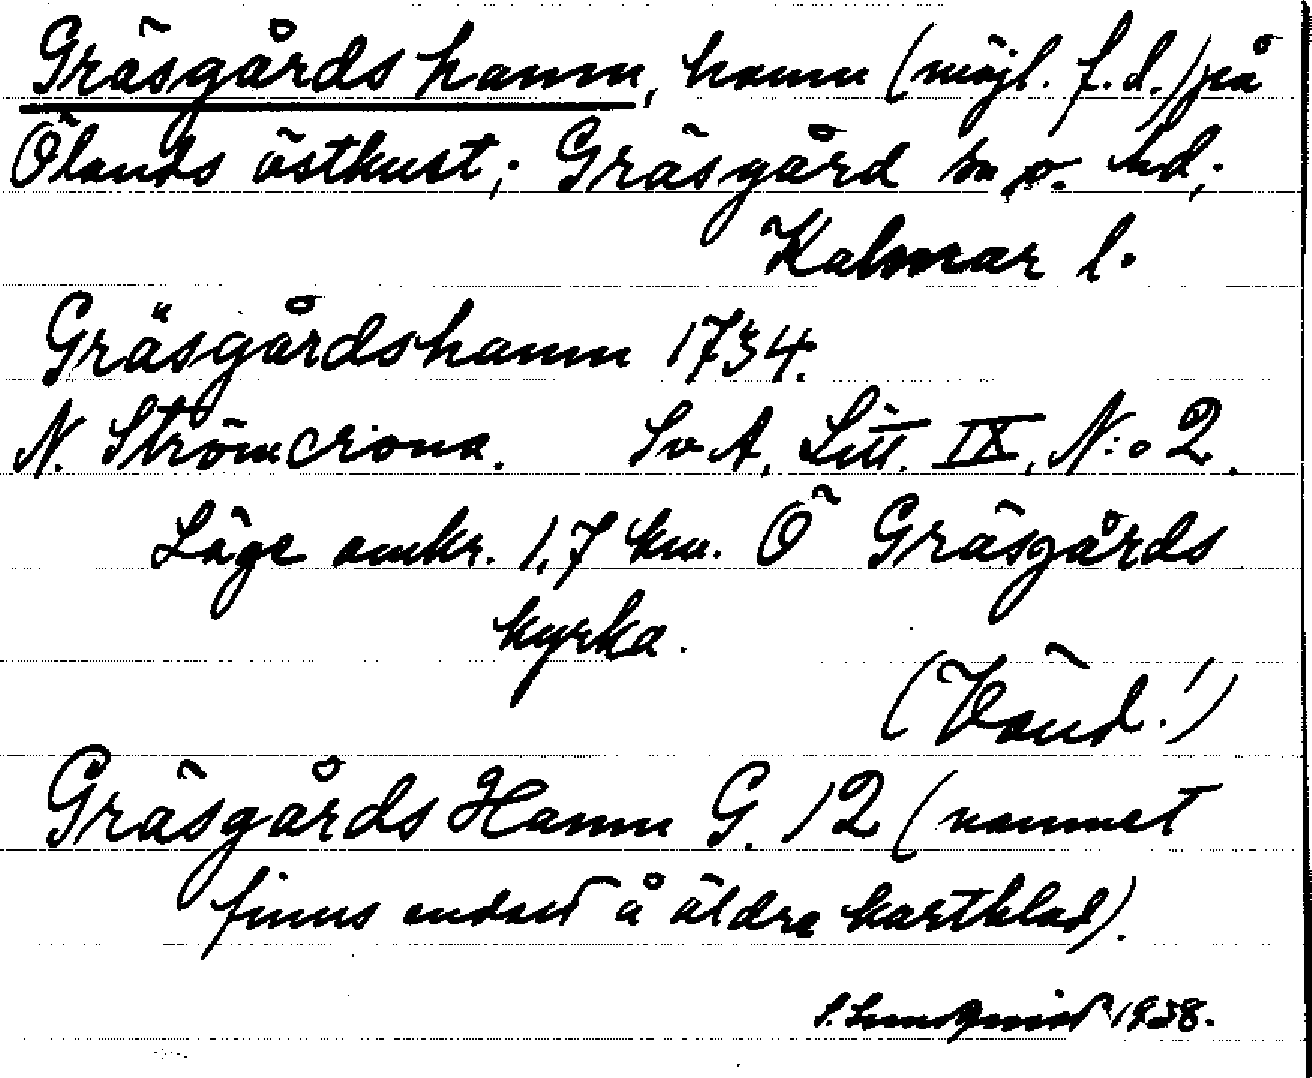 Gräsgårds hamn, hamn (möjl. f.d.) på
Ölands östkust; Gräsgård sn o. hd;
Kalmar l.
Gräsgårdshamn 1734.
N. Strömcrona. SvA, Litt. IX, N:o 2.
Läge omkr. 1,7 km. Ö Gräsgårds
kyrka.
(Vänd!)
Gräsgårds Hamn G. 12 (namnet
finns endast å äldre kartblad).
S. Lundqvist 1938.